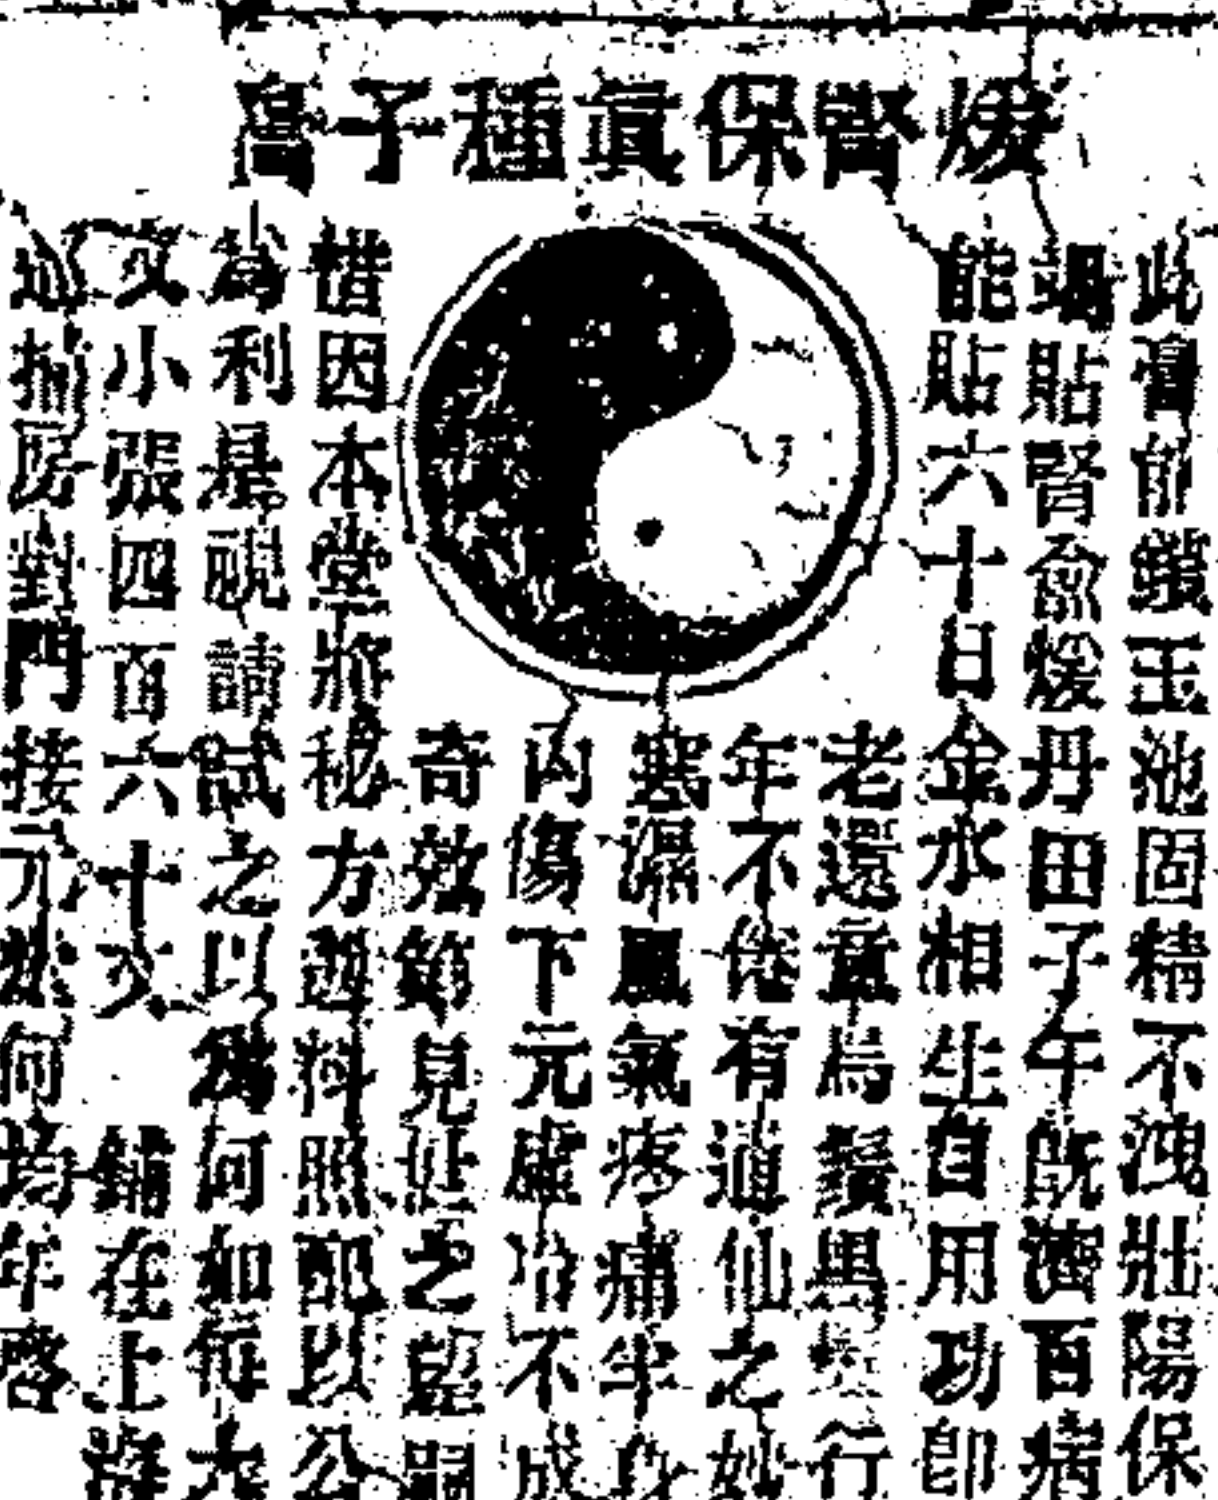 煖腎保眞種子膏
此膏能鎖玉池固精不洩壯陽保
竭貼腎俞煖丹田子午既濟百病
能貼六十日金水相生自用功卽
老還童烏鬚黑行
年不倦有通仙之妙
寒濕風氣疼痛半身
內傷下元虛冷不成
奇效節見壯之艱嗣
惜因本堂將秘方選料照配以公
為利是視請試之以為何如每大
文小張四百六十文 鋪在上海
捕房對門接元堂何均年啓